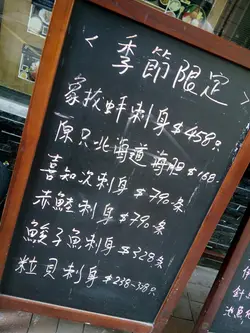 <季節限定>
象拔蚌刺身$458只
原只北海道海膽$168
喜知次刺身$790条
赤鯥刺身$790条
鮻子魚刺身$328条
粒貝刺身$238-318只